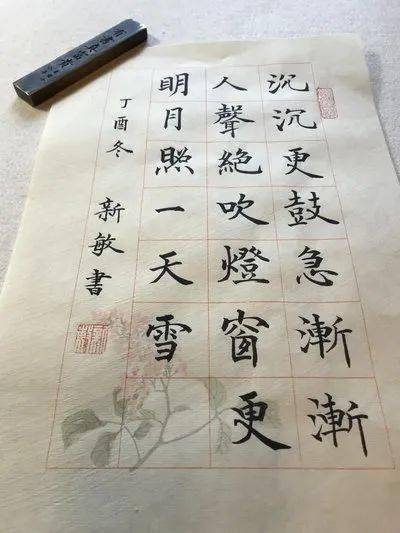 沉沉更鼓急漸漸
人聲絶吹燈窗更
明月照一天雪
丁酉冬 新敏書